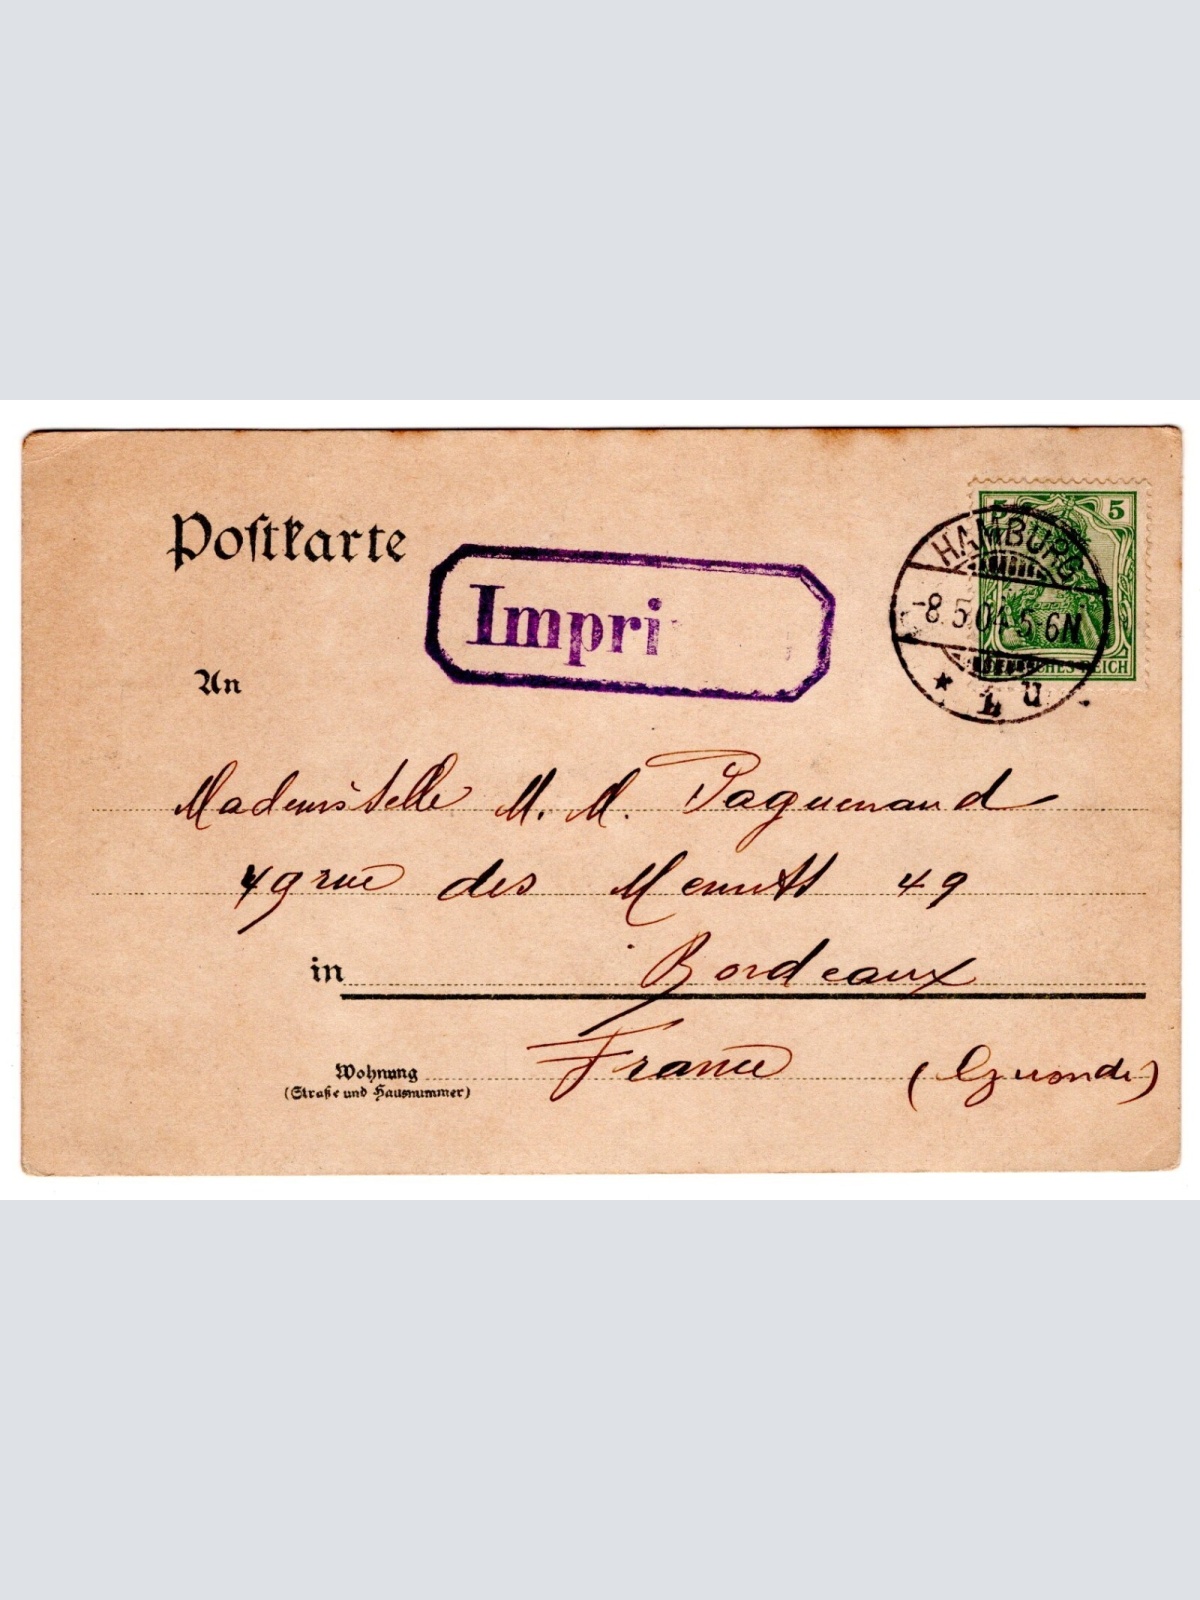 Postkarte
Impri
5 5
HAMBURG
-8.5.04.5-6N
* 1 u
DEUTSCHES REICH
An
Mademoiselle M. M. Paguenaud
49 rue des Menuts 49
in Bordeaux
France (Gironde)
Wohnung
(Straße und Hausnummer)